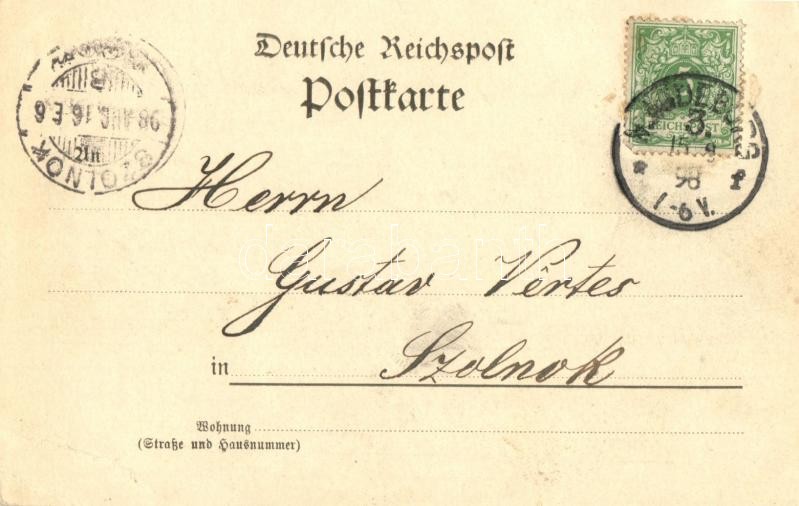 Deutsche Reichspost
Postkarte
SZOLNOK
98 AUG. 16 E 6
MAGDEBURG
3.
15 8
98
1-6 V.
REICHSPOST
Herrn
Gustav Vértes
in Szolnok
Wohnung
(Straße und Hausnummer)
An
darabanth